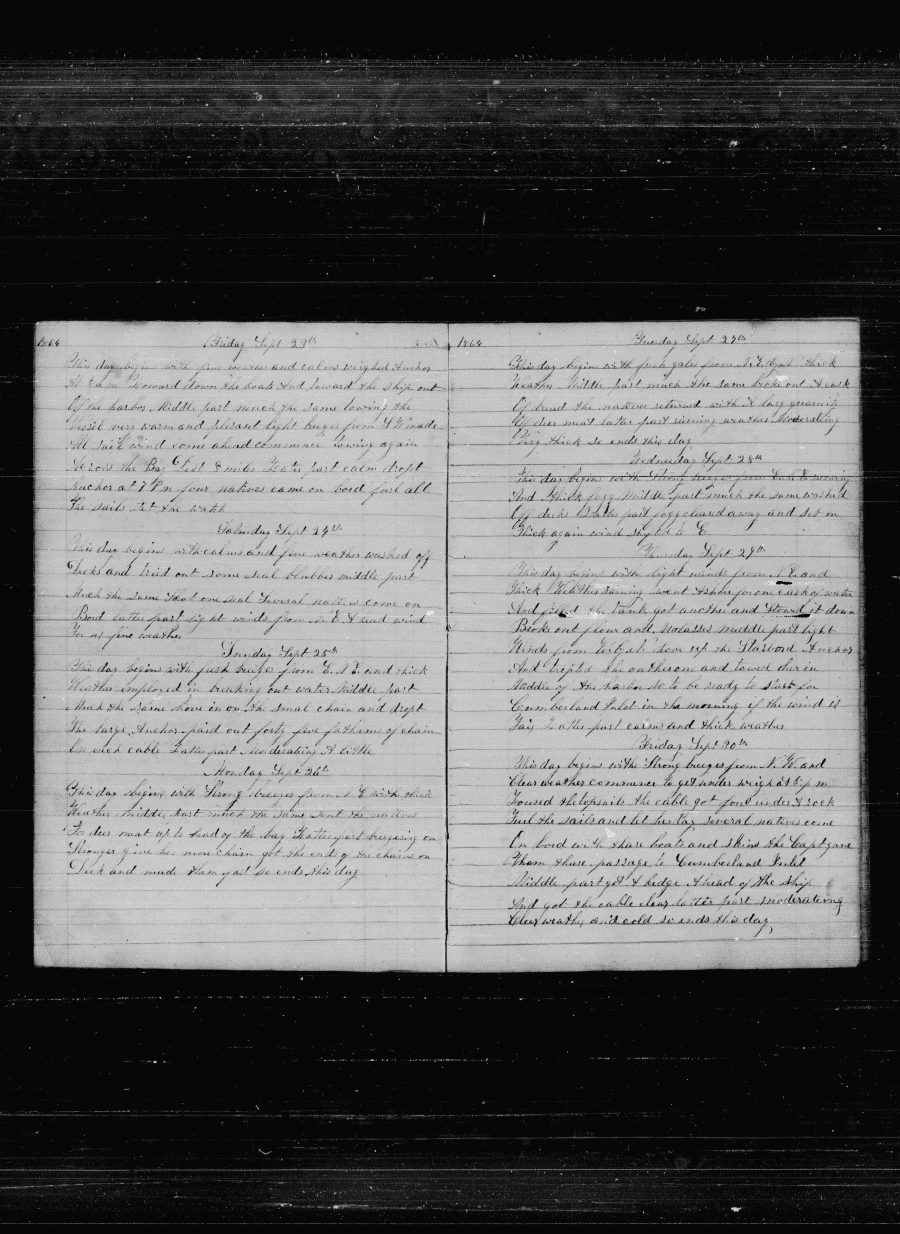 1864 Friday Sept 23th
This day begins with fine weather and calms weighed Anchor
At 8 a m Lowerd down the boats And toward the ship out
Of the harbor Middle part much the same towing the
vessel very warm and plesant light breezes from S W made
All sail wind come ahead commence towing again
Across the Bay dist 8 miles Later part calm dropt
Anchor at 7 P m four natives came on bord furl all
The sails Set the watch
Saturday Sept 24th
This day begins with calms and fine weather washed off
Decks and tried out some seal blubber middle part
Much the same shot one seal Several natives come on
Bord Latter part light winds from N E A head wind
For us fine weather
Sunday Sept 25th
This day begins with fresh breeze from E. N E and thick
Weather employed in breaking out water Middle part
Much the same hove in on the small chain and dropt
The large Anchor paid out forty five fathems of chain
On each cable Later part Moderating A little
Monday Sept 26th
This day begins with Strong breezes from N E with thick
Weather middle part much the same sent the natives
For deer meat up to head of the bay Latter part breezeing on
Stronger give her more chain got the ends of the chains on
Deck and made them fast so ends this day
1864 Tuesday Sept 27th
This day begin with fresh gales from N. E thick
Weather Middle part much the same broke out A cask
Of bread the natives returned with A larg quanity
Of deer meat latter part raining weather Moderating
Very thick so ends this day
Wednesday Sept 28th
This day begins with Strong breeze from E. N. E raining
And thick fogg Middle part much the same washed
Off decks Latter part fogg cleared away and set on
Thick again wind N E
Thursday Sept 29th
This day begins with light winds from N E and
Thick Weather raining went Ashore for one cask of water
And filled the tank got another and stowed it down
Broke out flour and Molasses middle part light
Winds from hove up the Starbord Anchor
And triped the other one and towed her in
Middle of the harbor so to be ready to start for
Cumberland Inlet in the morning if the wind is
Fair Later part calms and thick weather
Friday Sept 30th
This day begins with Strong breezes from N. W and
Clear weather commence to get under weigh at 5 p m
Loosed the topsails the cable got foul under A rock
Furl the sails and let her lay several natives come
On bord with thare boats and skins the Capt gave
Them thare passage to Cumberland Inlet
Middle part got A kedge Ahead of the ship
And got the cable clear latter part moderateing
Clear weathy and cold so ends this day